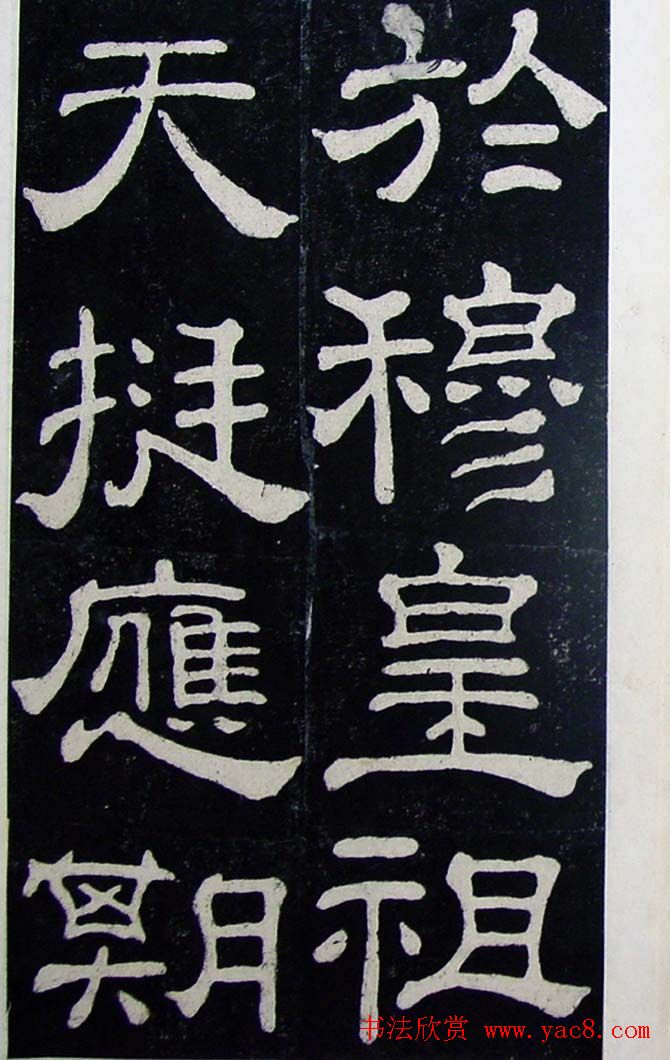 於穆皇祖
天挺應期
书法欣赏 www.yac8.com